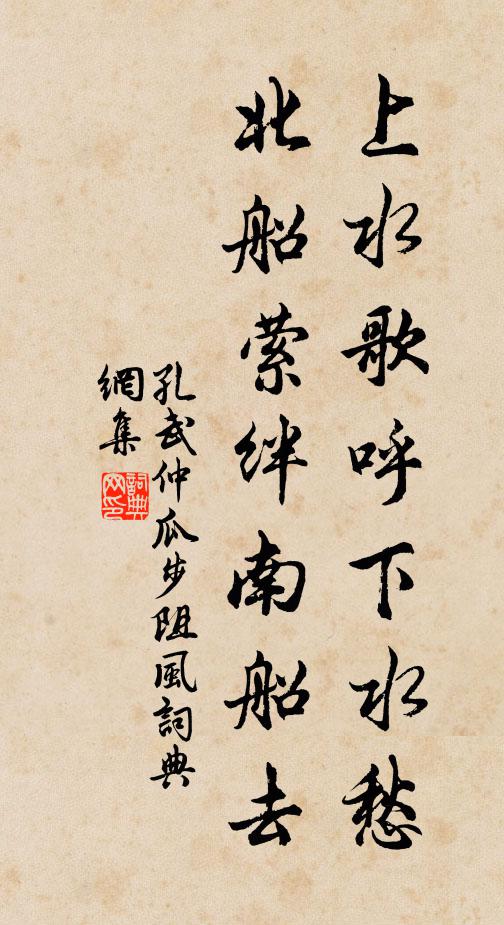 上水歌呼下水愁
北船萦绊南船去
孔武仲瓜步阻風詞典
網集
詞典
网印